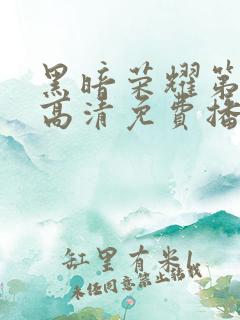 黑暗荣耀第
高清免費播
缸里有米l
未经同意禁止转载